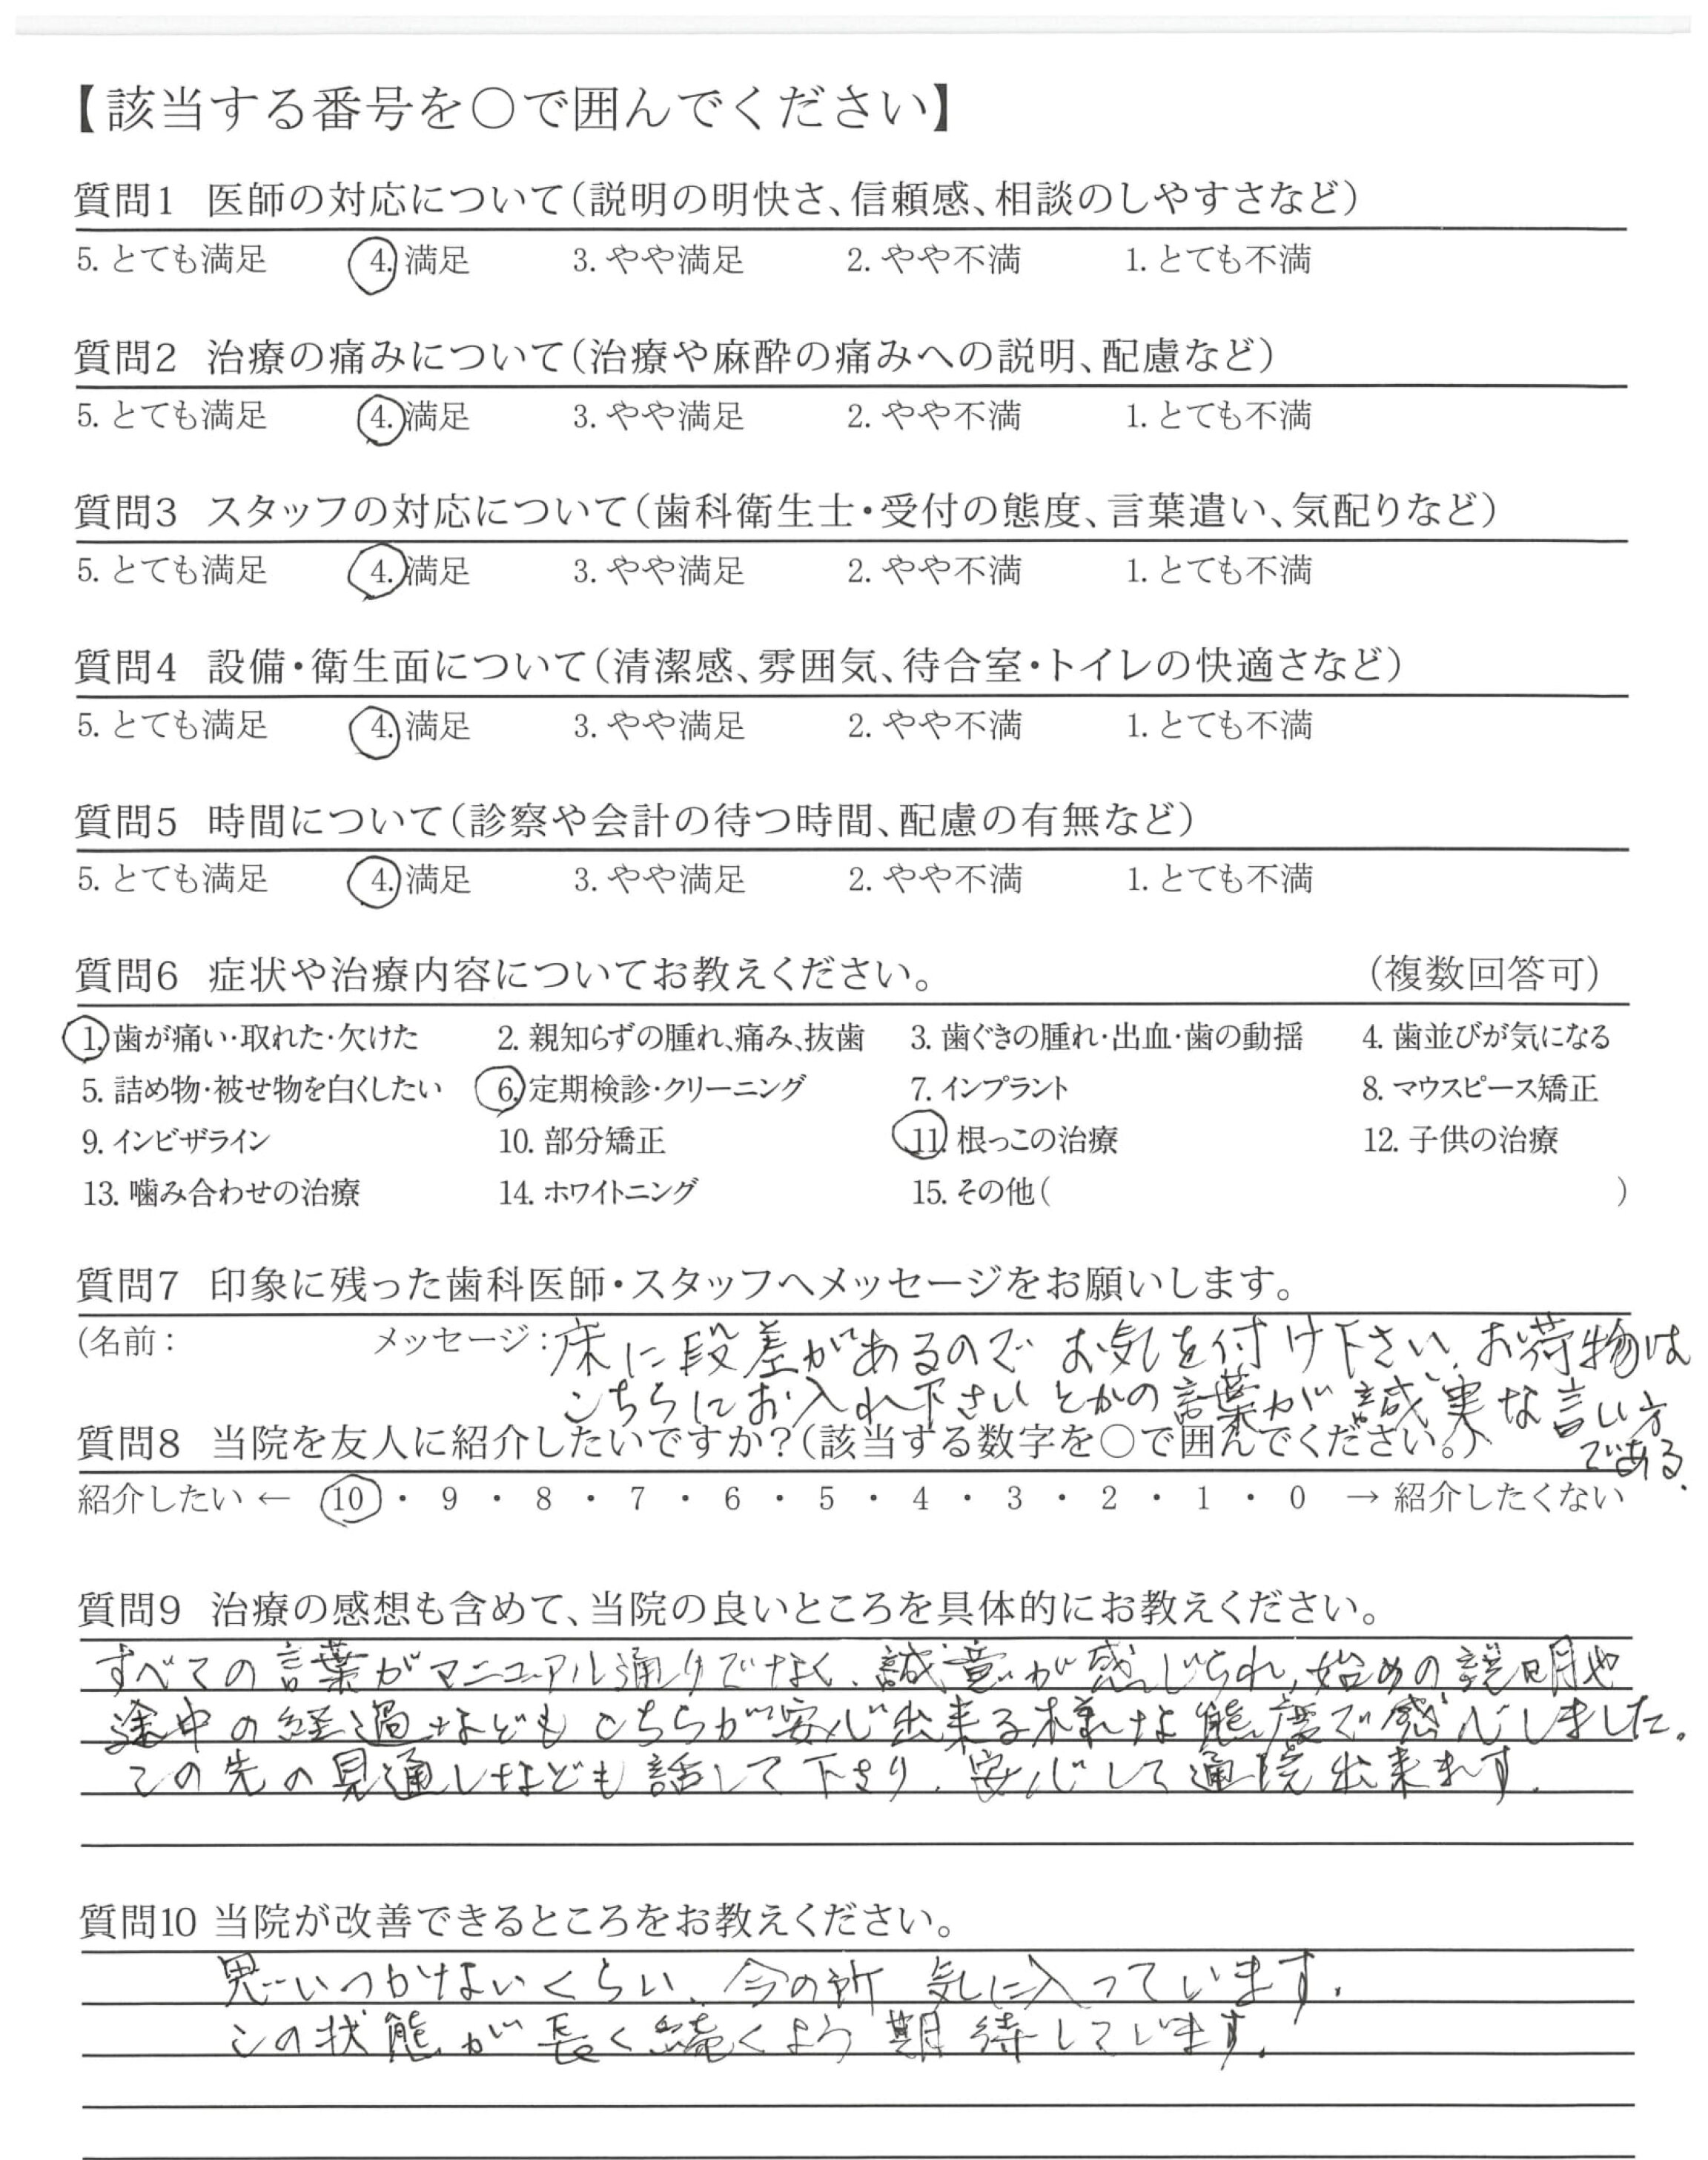 【該当する番号を○で囲んでください】
質問1 医師の対応について(説明の明快さ、信頼感、相談のしやすさなど)
5. とても満足 4. 満足 3. やや満足 2. やや不満 1. とても不満
質問2 治療の痛みについて(治療や麻酔の痛みへの説明、配慮など)
5. とても満足 4. 満足 3. やや満足 2. やや不満 1. とても不満
質問3 スタッフの対応について(歯科衛生士・受付の態度、言葉遣い、気配りなど)
5. とても満足 4. 満足 3. やや満足 2. やや不満 1. とても不満
質問4 設備・衛生面について(清潔感、雰囲気、待合室・トイレの快適さなど)
5. とても満足 4. 満足 3. やや満足 2. やや不満 1. とても不満
質問5 時間について(診察や会計の待つ時間、配慮の有無など)
5. とても満足 4. 満足 3. やや満足 2. やや不満 1. とても不満
質問6 症状や治療内容についてお教えください。 (複数回答可)
1. 歯が痛い・取れた・欠けた 2. 親知らずの腫れ、痛み、抜歯 3. 歯ぐきの腫れ・出血・歯の動揺 4. 歯並びが気になる
5. 詰め物・被せ物を白くしたい 6. 定期検診・クリーニング 7. インプラント 8. マウスピース矯正
9. インビザライン 10. 部分矯正 11. 根っこの治療 12. 子供の治療
13. 噛み合わせの治療 14. ホワイトニング 15. その他( )
質問7 印象に残った歯科医師・スタッフへメッセージをお願いします。
(名前: メッセージ:床に段差があるので お気を付け下さい、お荷物は
こちらにお入れ下さい とかの言葉が誠実な言い方
である.
質問8 当院を友人に紹介したいですか?(該当する数字を○で囲んでください。)
紹介したい ← 10 ・ 9 ・ 8 ・ 7 ・ 6 ・ 5 ・ 4 ・ 3 ・ 2 ・ 1 ・ 0 → 紹介したくない
質問9 治療の感想も含めて、当院の良いところを具体的にお教えください。
すべての言葉がマニュアル通りでなく、誠意が感じられ、始めの説明や
途中の経過などもこちらが安心出来る様な態度で感心しました。
この先の見通しなども話して下さり、安心して通院出来ます.
質問10 当院が改善できるところをお教えください。
思いつかないくらい、今の所 気に入っています.
この状態が長く続くよう期待しています.